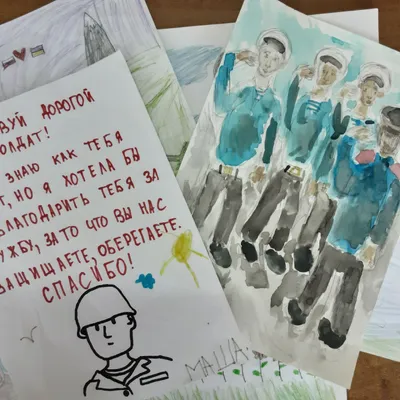 ВУЙ ДОРОГОЙ
ОЛДАТ!
ЗНАЮ КАК ТЕБЯ
Т, НО Я ХОТЕЛА БЫ
ЛАГОДАРИТЬ ТЕБЯ ЗА
УЖБУ, ЗА ТО ЧТО ВЫ НАС
ЗАЩИЩАЕТЕ, ОБЕРЕГАЕТЕ.
СПАСИБО!
МАША